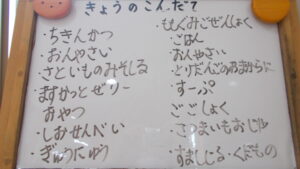 きょうのこんだて
・ちきんかつ
・おんやさい
・さといものみそしる
・ますかっとぜりー
・おやつ
・しおせんべい
・ぎゅうにゅう
・もぐみごぜんしょく
・ごはん
・おんやさい
・とりだんごの
・すーぷ
・ごごしょく
・さつまいもおじや
・すましじる・くだもの